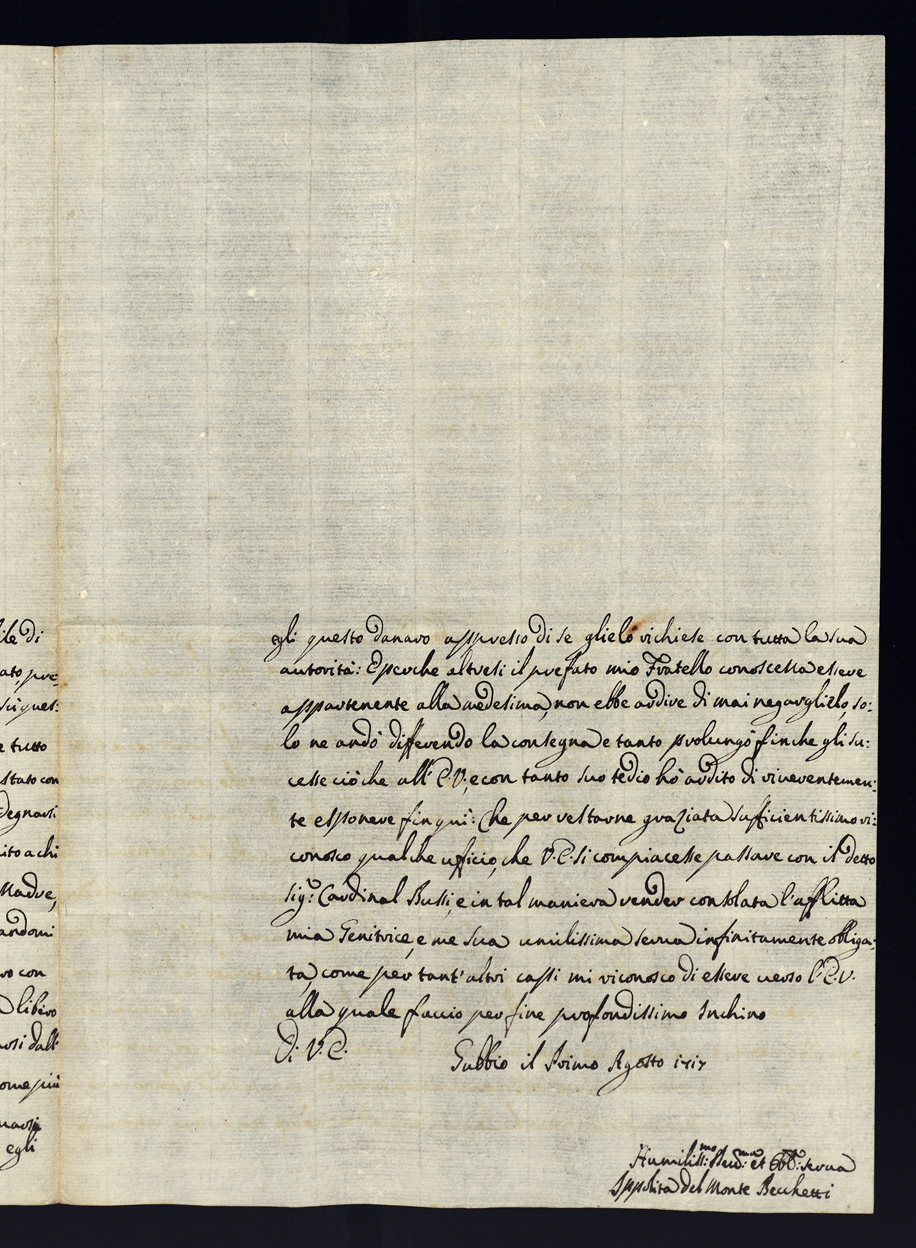 ile di
ato pre=
si ques:
e tutto
stato con
Degnarsi
ito a chi
Madre,
andomi
ro con
libero
arsi dall'
ome più
egli
egli questo danaro appresso di se glielo richiese con tutta la sua
autorità: E perche altresi il prefato mio Fratello conosceua essere
appartenente alla medesima, non ebbe ardire di mai negarglielo, so:
lo ne andò differendo la consegna e tanto prolungò finche gli su:
cesse ciò che all' E.V., e con tanto suo tedio hò ardito di riuerentemen:
te esponere fin qui: Che per restarne graziata sufficientissimo ri:
conosco qualche ufficio, che V.E. si compiacesse passare con il detto
Sig.r Cardinal Bussi, e in tal maniera render consolata l'afflitta
mia Genitrice, e me sua umilissima serua infinitamente obliga:
ta, come per tant'altri cassi mi riconosco di essere uerso l'E.V.
alla quale faccio per fine profondissimo Inchino
Di V.E.
Gubbio il Primo Agosto 1717
Humiliss:mo Deu:ma et Obb:a serua
Ippolita del Monte Becchetti